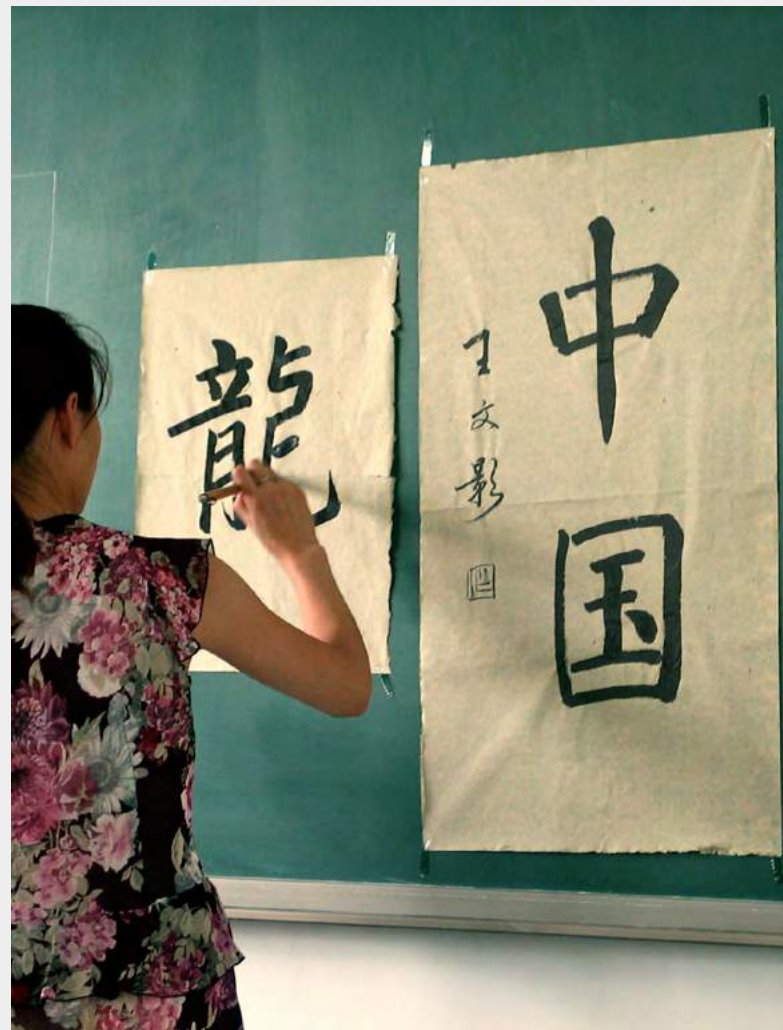 龍
中国
王文影